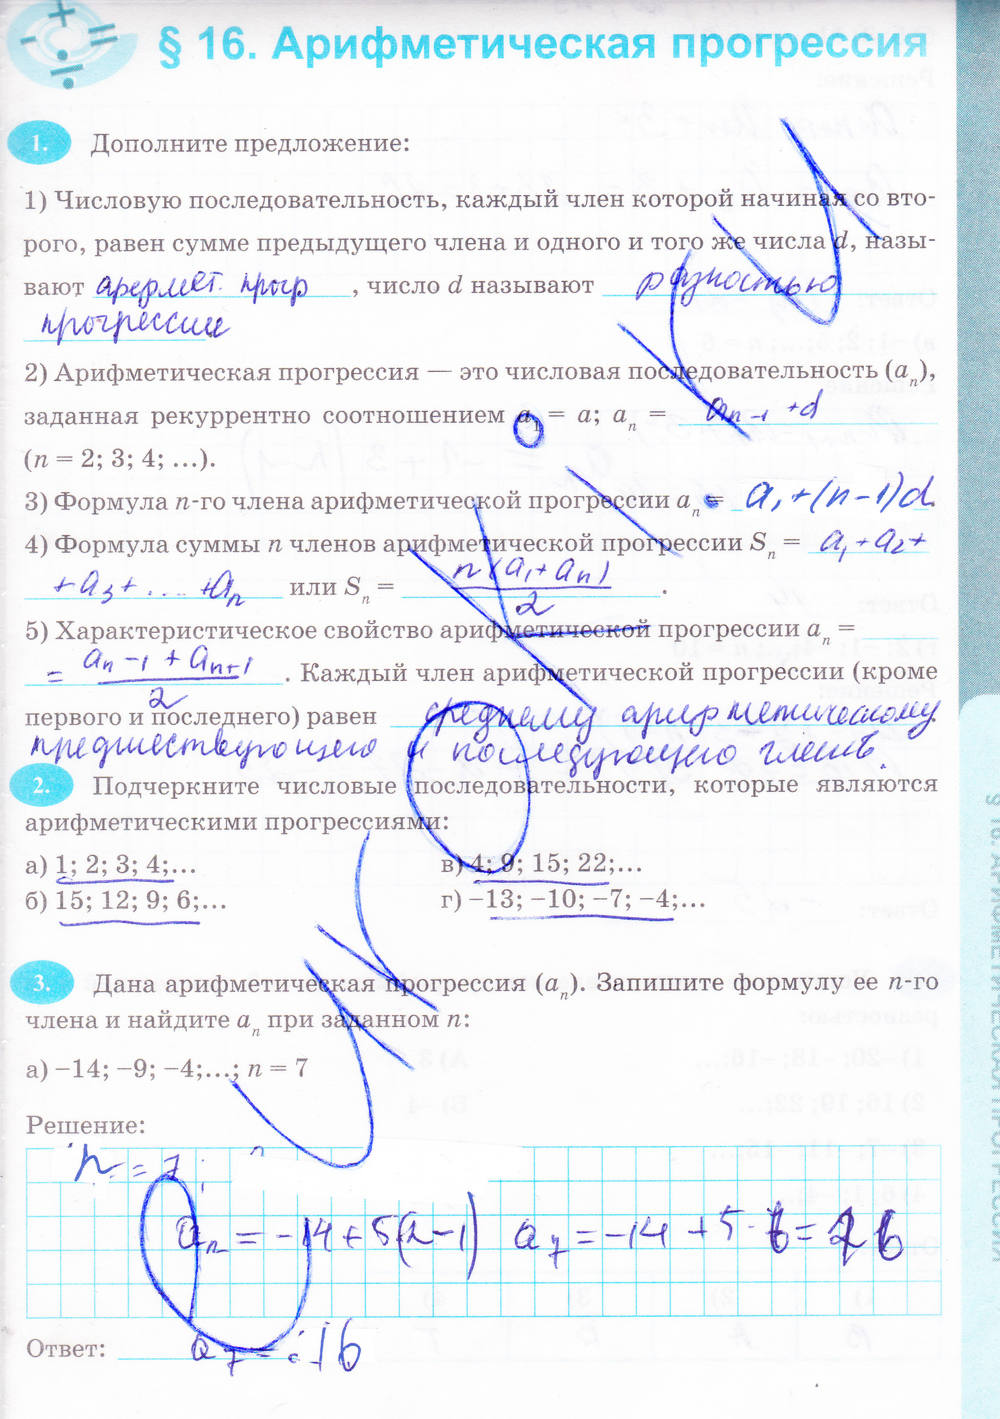 § 16. Арифметическая прогрессия
1. Дополните предложение:
1) Числовую последовательность, каждый член которой начиная со вто-
рого, равен сумме предыдущего члена и одного и того же числа d, назы-
вают арифмет. прогр , число d называют разностью
прогрессии
2) Арифметическая прогрессия — это числовая последовательность (aₙ),
заданная рекуррентно соотношением a₁ = a; aₙ = aₙ₋₁ + d
(n = 2; 3; 4; …).
3) Формула n-го члена арифметической прогрессии aₙ = a₁ + (n – 1)d
4) Формула суммы n членов арифметической прогрессии Sₙ = a₁ + a₂ +
+ a₃ + .... + aₙ или Sₙ = n(a₁ + aₙ)/2.
5) Характеристическое свойство арифметической прогрессии aₙ =
= (aₙ₋₁ + aₙ₊₁)/2. Каждый член арифметической прогрессии (кроме
первого и последнего) равен среднему арифметическому
предшествующего и последующего членов.
2. Подчеркните числовые последовательности, которые являются
арифметическими прогрессиями:
а) 1; 2; 3; 4;… в) 4; 9; 15; 22;…
б) 15; 12; 9; 6;… г) –13; –10; –7; –4;…
3. Дана арифметическая прогрессия (aₙ). Запишите формулу ее n-го
члена и найдите aₙ при заданном n:
а) –14; –9; –4;…; n = 7
Решение:
n = 7;
aₙ = –14 + 5(n–1) a₇ = –14 + 5 · 6 =
Ответ: a₇ = 16
§ 16. АРИФМЕТИЧЕСКАЯ ПРОГРЕССИЯ